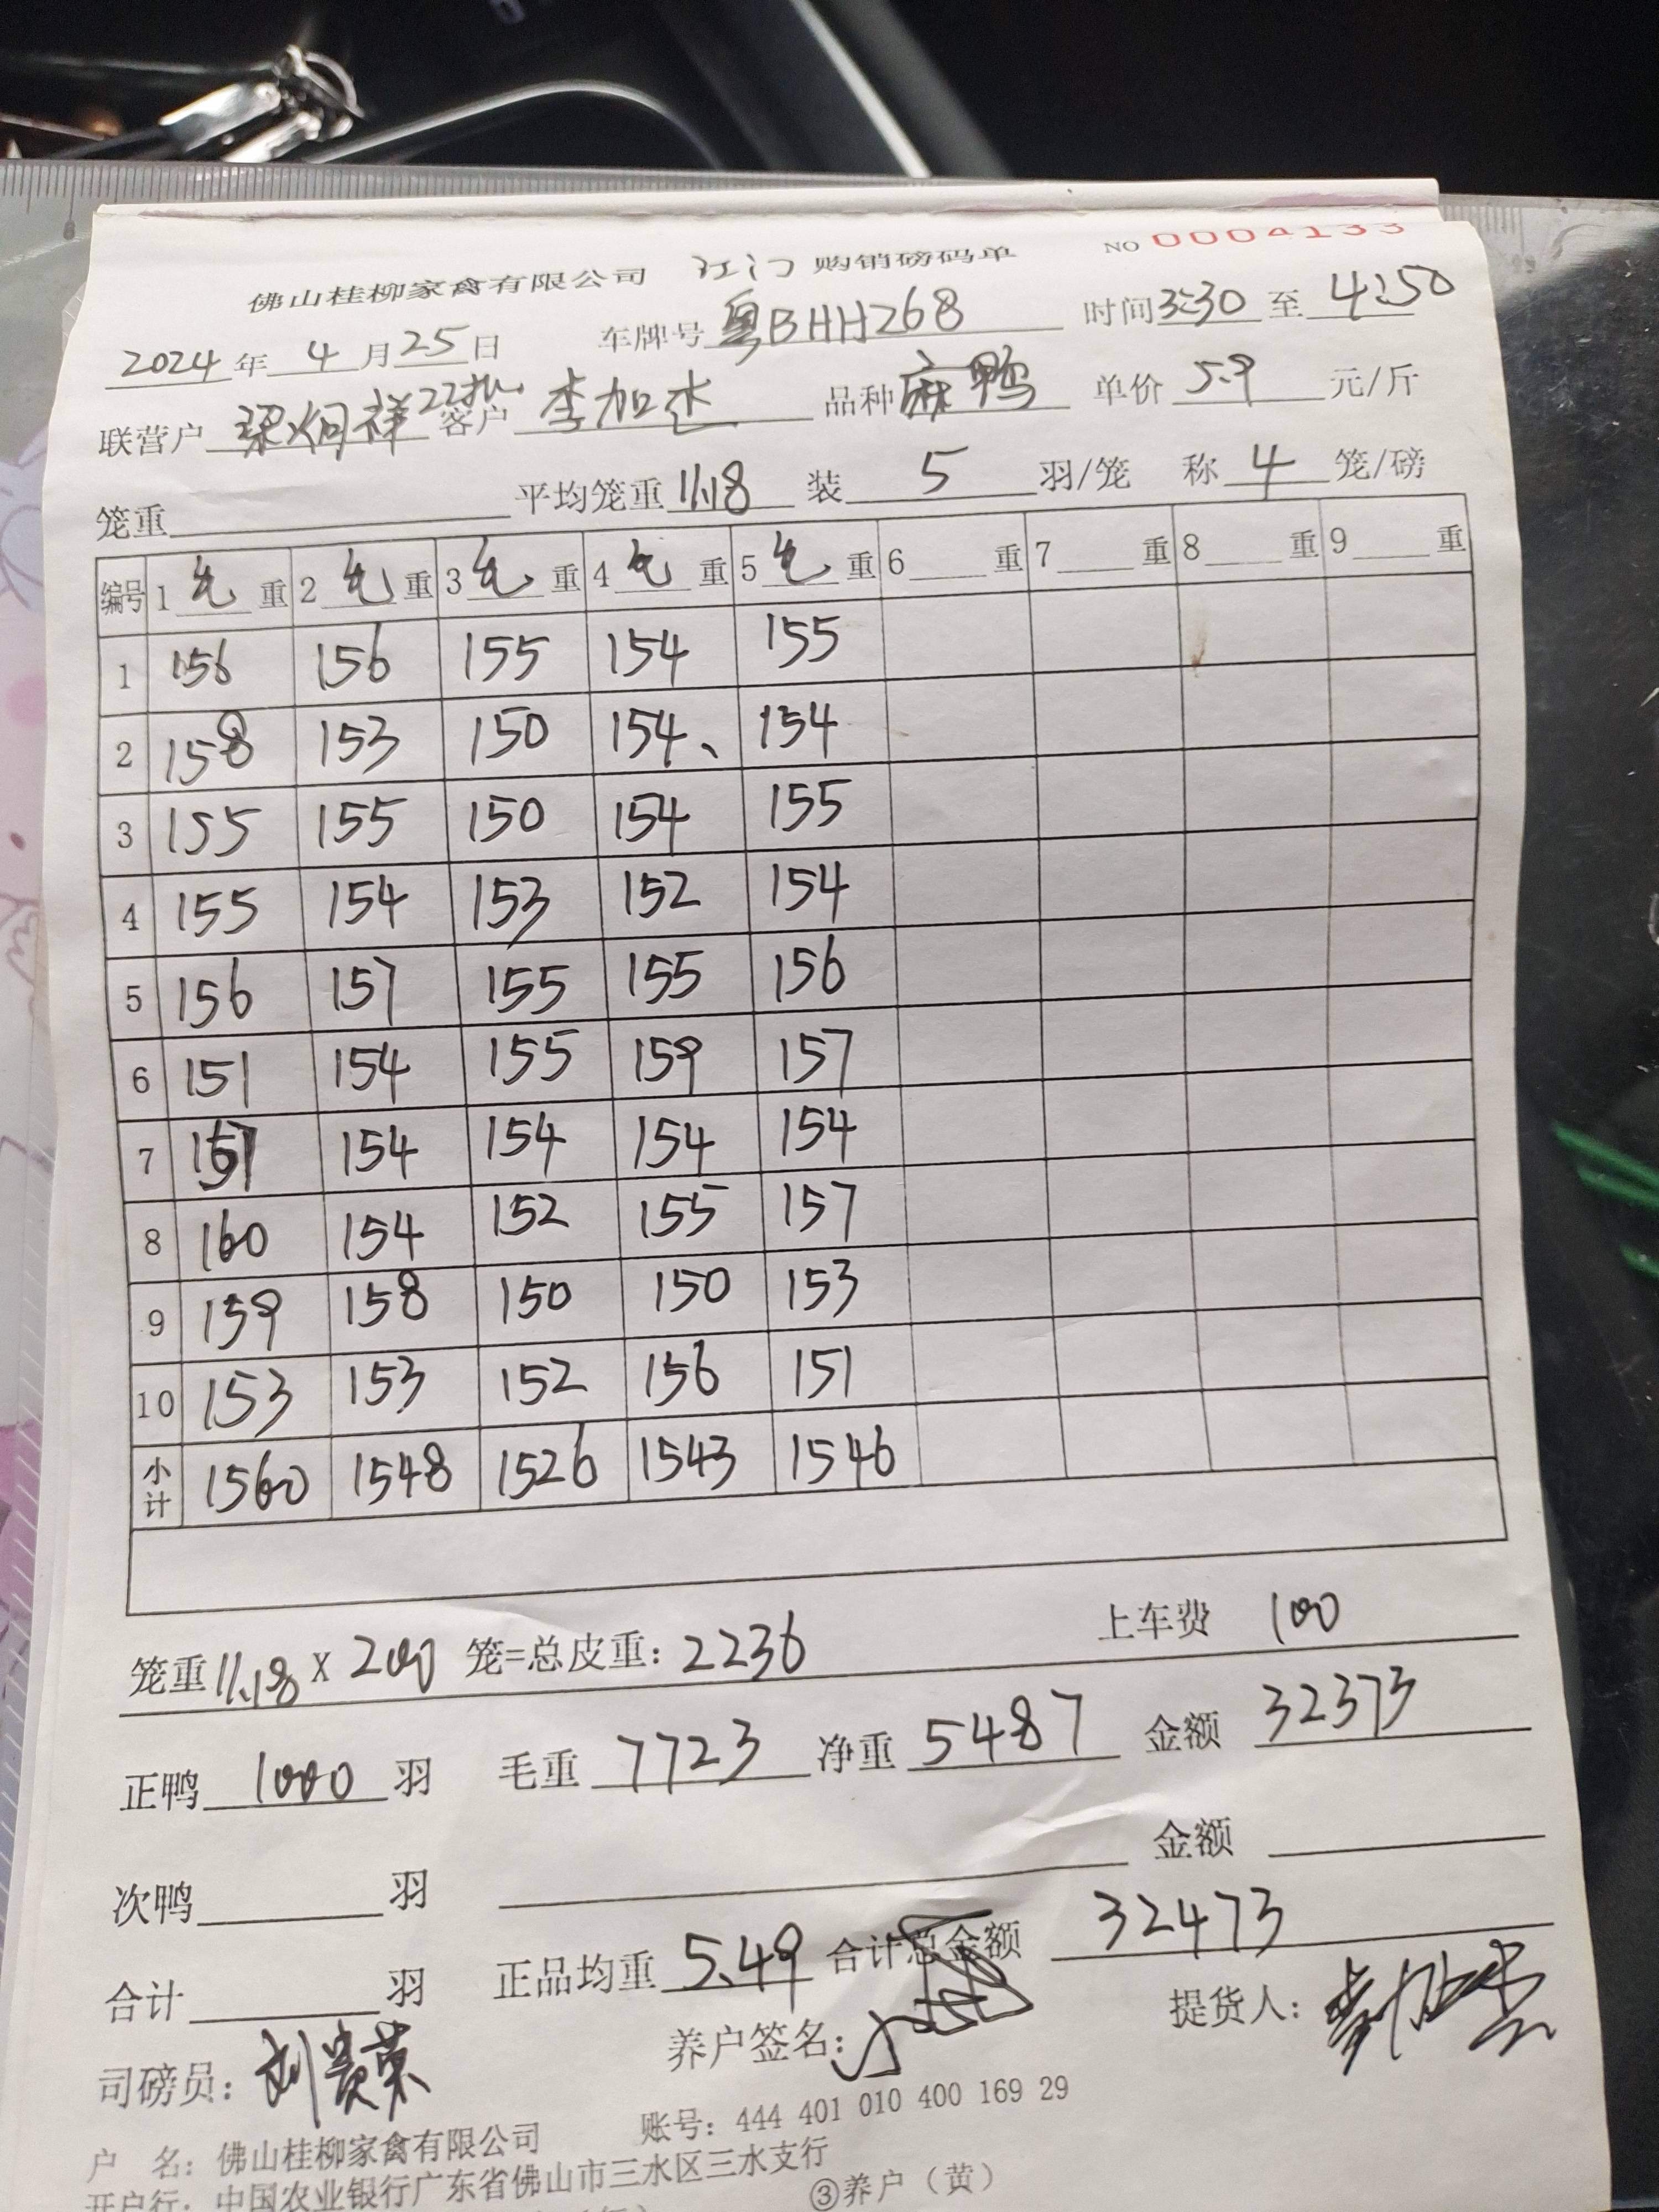 佛山桂柳家禽有限公司 江门 购销磅码单 NO 0004133
2024年 4月25日 车牌号 粤BHH268 时间3:30至4:50
联营户 梁炳祥22批 客户 李加 品种 麻鸭 单价 5.9 元/斤
笼重 平均笼重 11.18 装 5 羽/笼 称 4 笼/磅
编号 1 毛 重 2 毛 重 3 毛 重 4 毛 重 5 毛 重 6 重 7 重 8 重 9 重
1 156 156 155 154 155
2 158 153 150 154、 154
3 155 155 150 154 155
4 155 154 153 152 154
5 156 157 155 155 156
6 151 154 155 159 157
7 157 154 154 154 154
8 160 154 152 155 157
9 159 158 150 150 153
10 153 153 152 156 151
小计 1560 1548 1526 1543 1546
笼重 11.18 X 200 笼=总皮重: 2236 上车费 100
正鸭 1000 羽 毛重 7723 净重 5487 金额 32373
次鸭 羽 金额
合计 羽 正品均重 5.49 合计总金额 32473
司磅员: 刘贵荣 养户签名: 提货人:
户 名: 佛山桂柳家禽有限公司 账号: 444 401 010 400 169 29
开户行: 中国农业银行广东省佛山市三水区三水支行
③养户（黄）